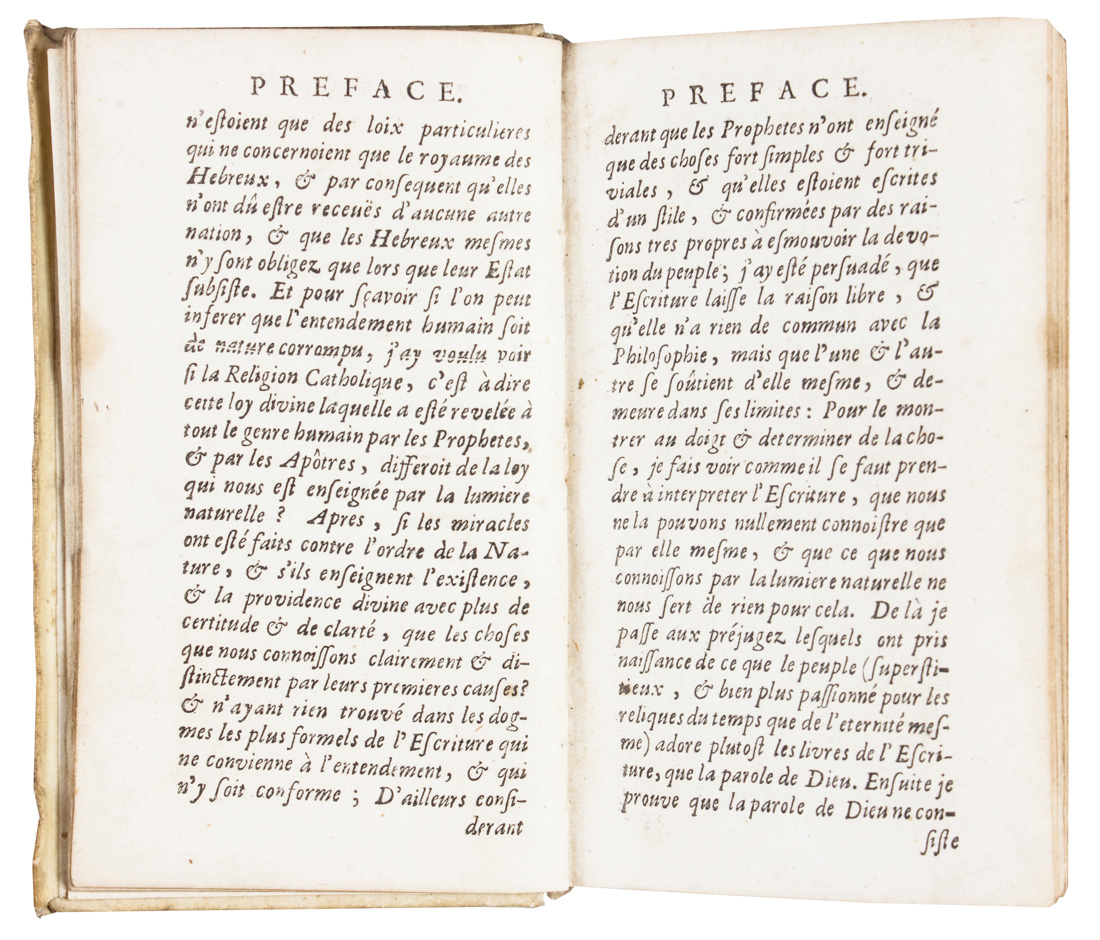 PREFACE.
n'eſtoient que des loix particulieres
qui ne concernoient que le royaume des
Hebreux, & par conſequent qu'elles
n'ont dû eſtre receuës d'aucune autre
nation, & que les Hebreux meſmes
n'y ſont obligez que lors que leur Eſtat
ſubſiſte. Et pour ſçavoir ſi l'on peut
inferer que l'entendement humain ſoit
de nature corrompu, j'ay voulu voir
ſi la Religion Catholique, c'eſt à dire
cette loy divine laquelle a eſté revelée à
tout le genre humain par les Prophetes,
& par les Apôtres, differoit de la loy
qui nous eſt enſeignée par la lumiere
naturelle ? Apres, ſi les miracles
ont eſté faits contre l'ordre de la Na-
ture, & s'ils enſeignent l'exiſtence,
& la providence divine avec plus de
certitude & de clarté, que les choſes
que nous connoiſſons clairement & di-
ſtinctement par leurs premieres cauſes?
& n'ayant rien trouvé dans les dog-
mes les plus formels de l'Eſcriture qui
ne convienne à l'entendement, & qui
n'y ſoit conforme ; D'ailleurs conſi-
derant
PREFACE.
derant que les Prophetes n'ont enſeigné
que des choſes fort ſimples & fort tri-
viales, & qu'elles eſtoient eſcrites
d'un ſtile, & confirmées par des rai-
ſons tres propres à eſmouvoir la devo-
tion du peuple; j'ay eſté perſuadé, que
l'Eſcriture laiſſe la raiſon libre, &
qu'elle n'a rien de commun avec la
Philoſophie, mais que l'une & l'au-
tre ſe ſoûtient d'elle meſme, & de-
meure dans ſes limites : Pour le mon-
trer au doigt & determiner de la cho-
ſe, je fais voir comme il ſe faut pren-
dre à interpreter l'Eſcriture, que nous
ne la pouvons nullement connoiſtre que
par elle meſme, & que ce que nous
connoiſſons par la lumiere naturelle ne
nous ſert de rien pour cela. De là je
paſſe aux préjugez leſquels ont pris
naiſſance de ce que le peuple (ſuperſti-
tieux, & bien plus paſſionné pour les
reliques du temps que de l'eternité meſ-
me) adore plutoſt les livres de l'Eſcri-
ture, que la parole de Dieu. Enſuite je
prouve que la parole de Dieu ne con-
ſiſte